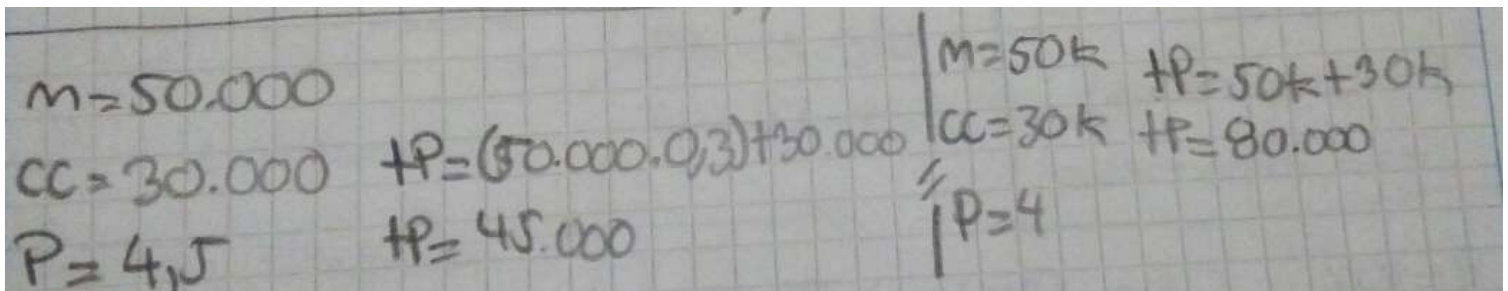 m=50.000
cc=30.000
P=4,5
tP=(50.000.0,3)+30.000
tP=45.000
m=50k
cc=30k
P=4
tP=50k+30k
tP=80.000